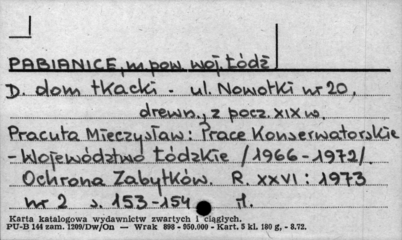 PABIANICE, m. pow. woj. Łódź
D. dom tkacki. ul. Nowotki nr 20,
drewn., z pocz. XIX w.
Pracuta Mieczysław: Prace Konserwatorskie
- Województwo Łódzkie /1966-1972/.
Ochrona Zabytków. R. XXVI: 1973
nr 2 s. 153-154 rł.
Karta katalogowa wydawnictw zwartych i ciągłych.
PU-B 144 zam. 1209/Dw/On — Wrak 898 - 950.000 - Kart. 5 kl. 180 g, - 8.72.